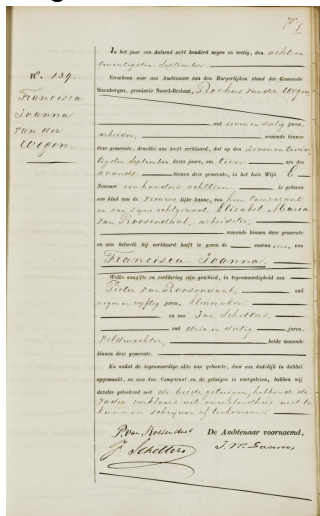 In het jaar een duizend acht honderd negen en zestig, den acht en
twintigsten September
Verscheen voor ons Ambtenaar van den Burgerlijken stand der Gemeente
Steenbergen, provincie Noord-Braband, Rochus van der Wegen
N°. 139.
Francisca
Joanna
van der
Wegen
oud zeven en dertig jaren,
arbeider, wonende binnen
deze gemeente, dewelke ons heeft verklaard, dat op den zevenentwin
tigsten September dezes jaars, om tien ure des
avonds binnen deze gemeente, in het huis Wijk E
Nummer een honderd achttien, is geboren
een kind van de vrouwelijke kunne, van hem Comparant
en van zijne echtgenoot Elizabet Maria
van Roosendaal, arbeidster,
wonende binnen deze gemeente
en aan hetwelk hij verklaard heeft te geven de voornamen van
Francisca Joanna.
Welke aangifte en verklaring zijn geschied, in tegenwoordigheid van
Pieter van Roosendaal, oud
negen en vijftig jaren,
en van Jan Schetters,
oud drie en dertig jaren,
veldwachter, beide wonende
binnen deze gemeente.
En nadat de tegenwoordige akte was geboekt, door ons dadelijk in dubbel
opgemaakt, en aan den Comparant en de getuigen is voorgelezen, hebben wij
dezelve geteekend met de beide getuigen, hebbende de
vader verklaard uit onwetendheid niet te
kunnen schrijven of teekenen.
P. van Rosendaal De Ambtenaar voornoemd,
J. Schetters